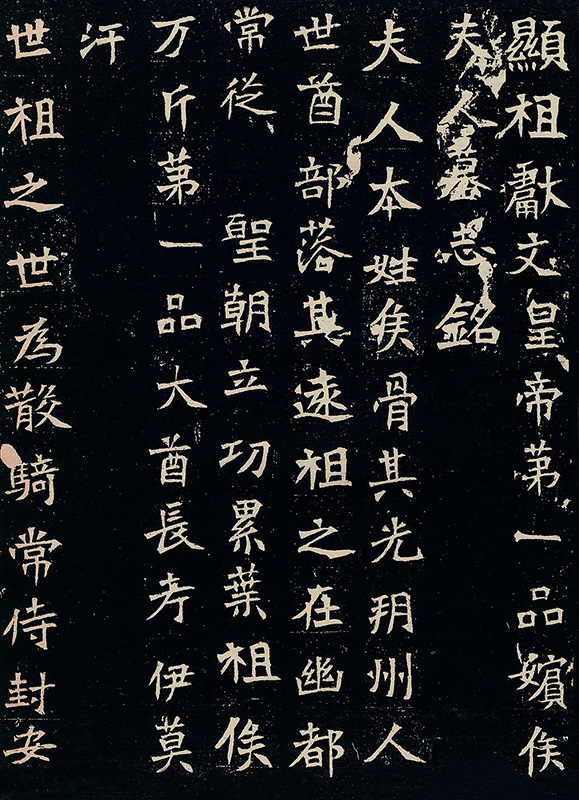 顯祖獻文皇帝第一品嬪侯
夫人墓志銘
夫人本姓侯骨其先朔州人
世酋部落其遠祖之在幽都
常從 聖朝立功累葉祖俟
万斤第一品大酋長考伊莫
汗
世祖之世為散騎常侍封安